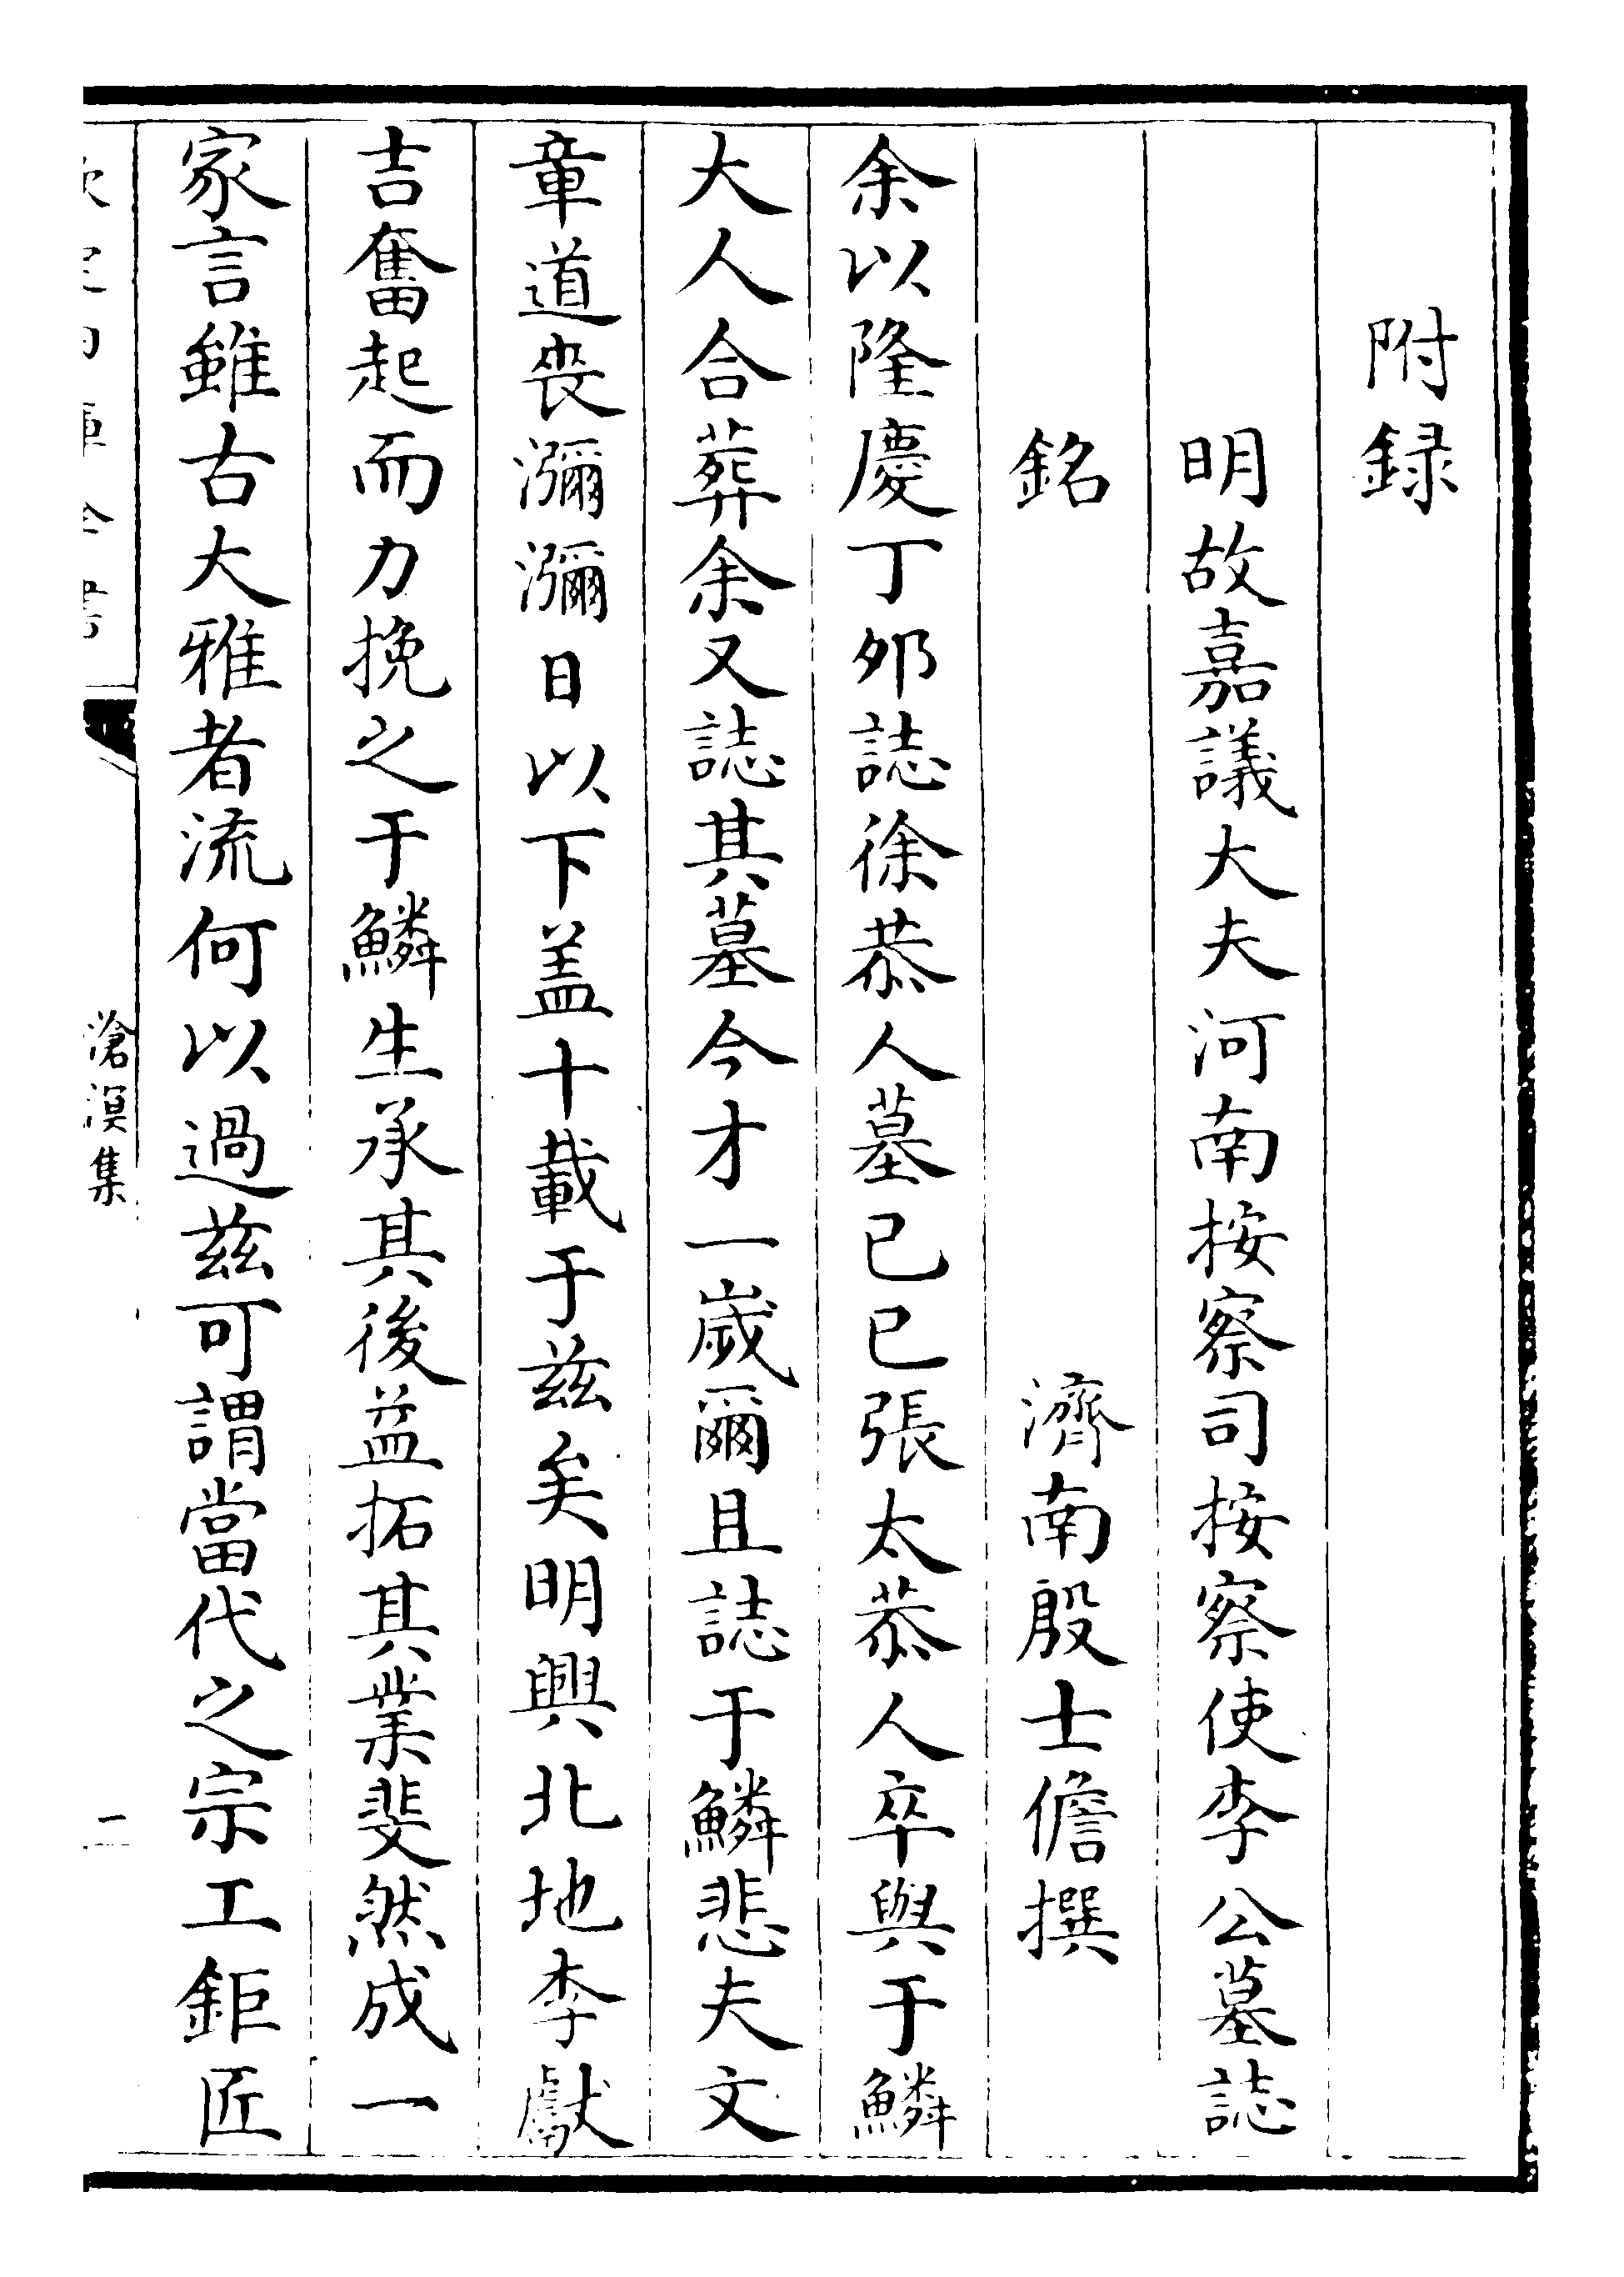 附録
明故嘉議大夫河南按察司按察使李公墓誌
銘　濟南殷士儋撰
余以隆慶丁夘誌徐恭人墓已已張太恭人卒與于鱗
大人合葬余又誌其墓今才一嵗爾且誌于鱗悲夫文
章道喪瀰瀰日以下盖十載于兹矣明興北地李獻
吉奮起而力挽之于鱗生承其後益拓其業斐然成一
家言雖古大雅者流何以過兹可謂當代之宗工鉅匠
欽定四庫全書
滄溟集
一